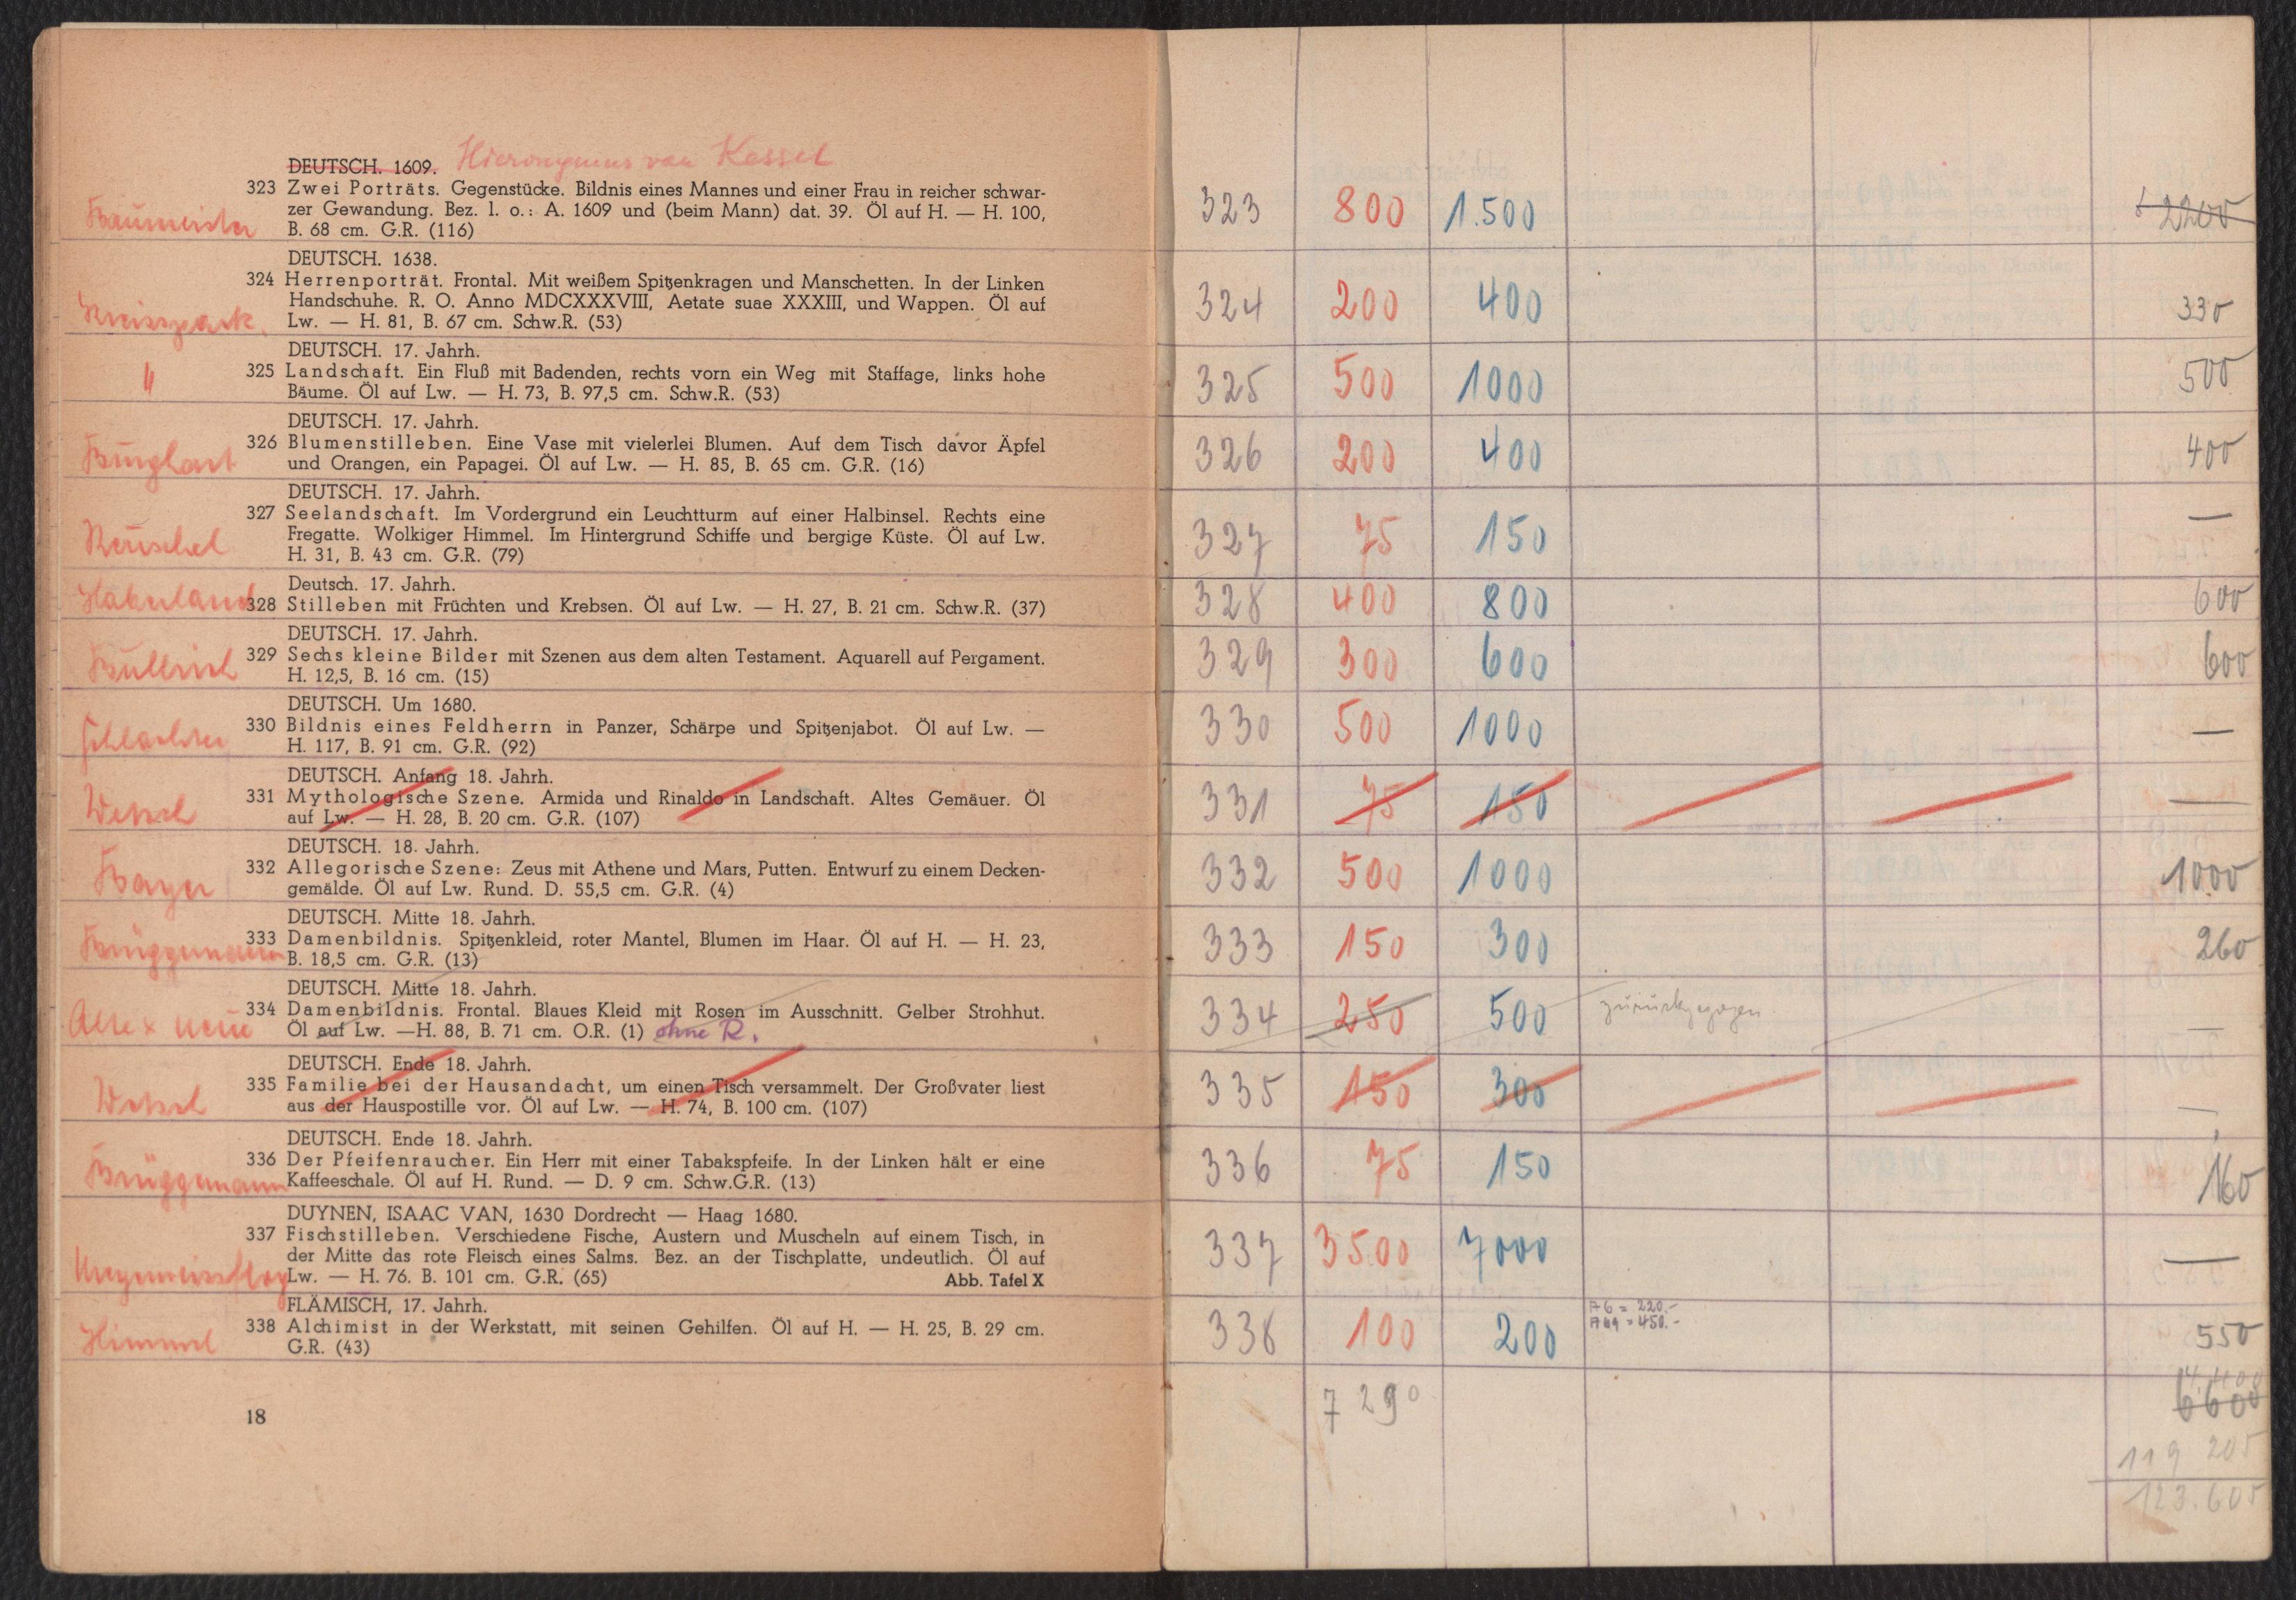 DEUTSCH. 1609. Hieronymus van Kessel
323 Zwei Porträts. Gegenstücke. Bildnis eines Mannes und einer Frau in reicher schwar-
zer Gewandung. Bez. l. o.: A. 1609 und (beim Mann) dat. 39. Öl auf H. — H. 100,
Baumeister B. 68 cm. G.R. (116)
DEUTSCH. 1638.
324 Herrenporträt. Frontal. Mit weißem Spitzenkragen und Manschetten. In der Linken
Handschuhe. R. O. Anno MDCXXXVIII, Aetate suae XXXIII, und Wappen. Öl auf
Lw. — H. 81, B. 67 cm. Schw.R. (53)
DEUTSCH. 17. Jahrh.
" 325 Landschaft. Ein Fluß mit Badenden, rechts vorn ein Weg mit Staffage, links hohe
Bäume. Öl auf Lw. — H. 73, B. 97,5 cm. Schw.R. (53)
DEUTSCH. 17. Jahrh.
326 Blumenstilleben. Eine Vase mit vielerlei Blumen. Auf dem Tisch davor Äpfel
und Orangen, ein Papagei. Öl auf Lw. — H. 85, B. 65 cm. G.R. (16)
DEUTSCH. 17. Jahrh.
327 Seelandschaft. Im Vordergrund ein Leuchtturm auf einer Halbinsel. Rechts eine
Fregatte. Wolkiger Himmel. Im Hintergrund Schiffe und bergige Küste. Öl auf Lw.
H. 31, B. 43 cm. G.R. (79)
Deutsch. 17. Jahrh.
Haberland 328 Stilleben mit Früchten und Krebsen. Öl auf Lw. — H. 27, B. 21 cm. Schw.R. (37)
DEUTSCH. 17. Jahrh.
Bullrich 329 Sechs kleine Bilder mit Szenen aus dem alten Testament. Aquarell auf Pergament.
H. 12,5, B. 16 cm. (15)
DEUTSCH. Um 1680.
330 Bildnis eines Feldherrn in Panzer, Schärpe und Spitzenjabot. Öl auf Lw. —
H. 117, B. 91 cm. G.R. (92)
DEUTSCH. Anfang 18. Jahrh.
Wetzel 331 Mythologische Szene. Armida und Rinaldo in Landschaft. Altes Gemäuer. Öl
auf Lw. — H. 28, B. 20 cm. G.R. (107)
DEUTSCH. 18. Jahrh.
Bayer 332 Allegorische Szene: Zeus mit Athene und Mars, Putten. Entwurf zu einem Decken-
gemälde. Öl auf Lw. Rund. D. 55,5 cm. G.R. (4)
DEUTSCH. Mitte 18. Jahrh.
Brüggemann 333 Damenbildnis. Spitzenkleid, roter Mantel, Blumen im Haar. Öl auf H. — H. 23,
B. 18,5 cm. G.R. (13)
DEUTSCH. Mitte 18. Jahrh.
334 Damenbildnis. Frontal. Blaues Kleid mit Rosen im Ausschnitt. Gelber Strohhut.
Öl auf Lw. —H. 88, B. 71 cm. O.R. (1) ohne R.
DEUTSCH. Ende 18. Jahrh.
Wetzel 335 Familie bei der Hausandacht, um einen Tisch versammelt. Der Großvater liest
aus der Hauspostille vor. Öl auf Lw. — H. 74, B. 100 cm. (107)
DEUTSCH. Ende 18. Jahrh.
336 Der Pfeifenraucher. Ein Herr mit einer Tabakspfeife. In der Linken hält er eine
Brüggemann Kaffeeschale. Öl auf H. Rund. — D. 9 cm. Schw.G.R. (13)
DUYNEN, ISAAC VAN, 1630 Dordrecht — Haag 1680.
337 Fischstilleben. Verschiedene Fische, Austern und Muscheln auf einem Tisch, in
der Mitte das rote Fleisch eines Salms. Bez. an der Tischplatte, undeutlich. Öl auf
Lw. — H. 76. B. 101 cm. G.R. (65) Abb. Tafel X
FLÄMISCH, 17. Jahrh.
Himmel 338 Alchimist in der Werkstatt, mit seinen Gehilfen. Öl auf H. — H. 25, B. 29 cm.
G.R. (43)
18
323 800 1.500 2200
324 200 400 330
325 500 1000 500
326 200 400 400
327 75 150 —
328 400 800 600
329 300 600 600
330 500 1000 —
331 75 150 —
332 500 1000 1000
333 150 300 260
334 250 500 zurückgezogen —
335 150 300 —
336 75 150 160
337 3500 7000 —
338 100 200 A6 = 220.- 550
A49 = 450.-
4.400
7290 6600
119 205
123.605